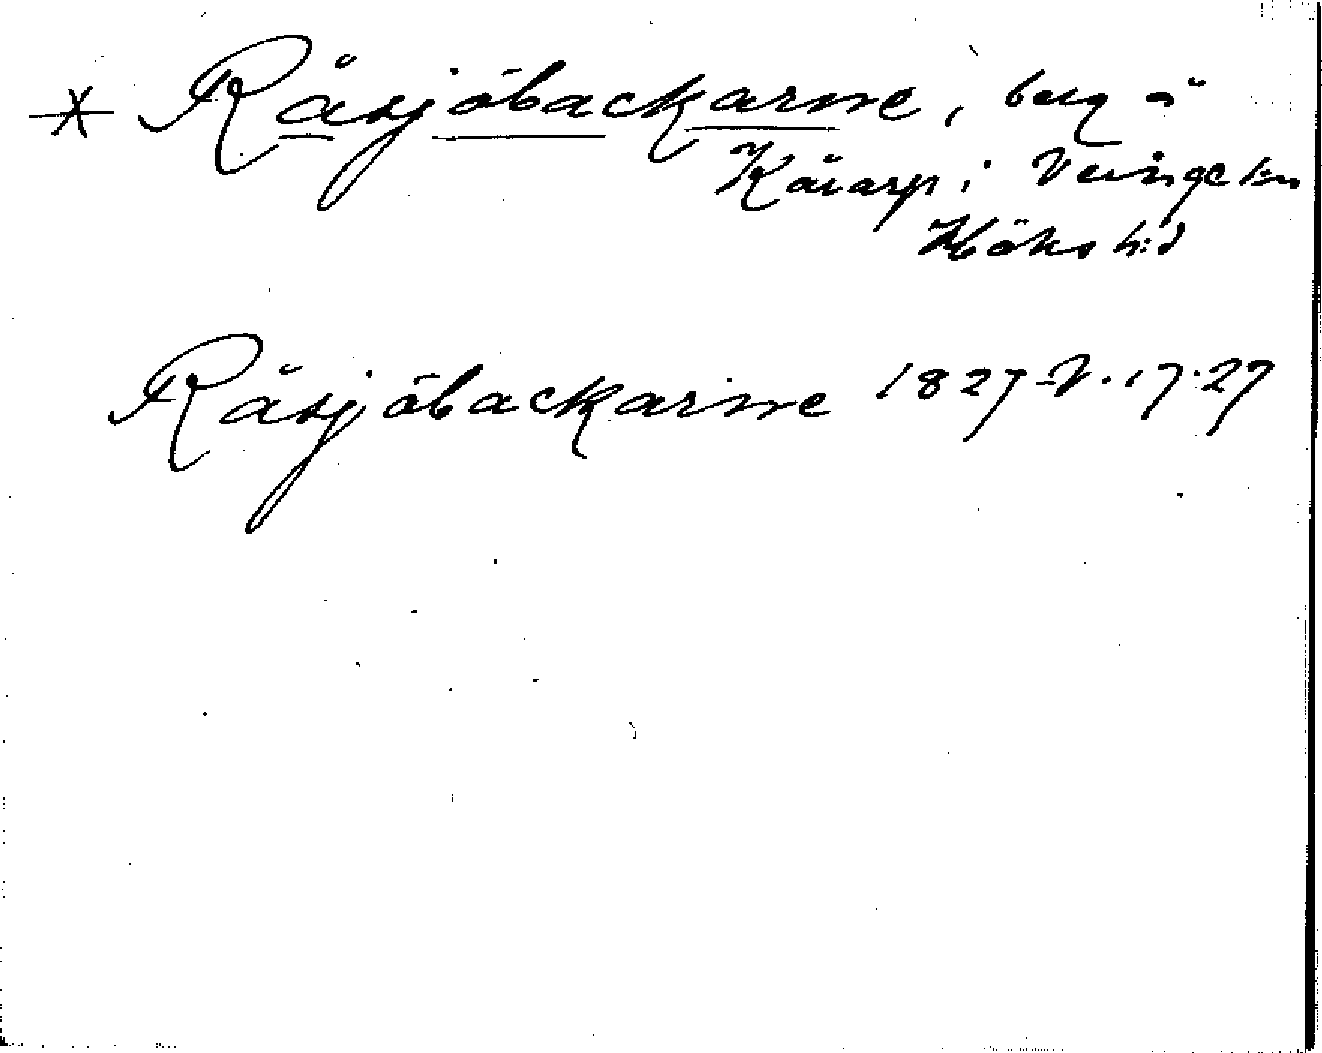 * Råsjöbackarne, berg å
Kärarp i Veinge sn
Höks h:d
Råsjöbackarne 1827-V.17.27